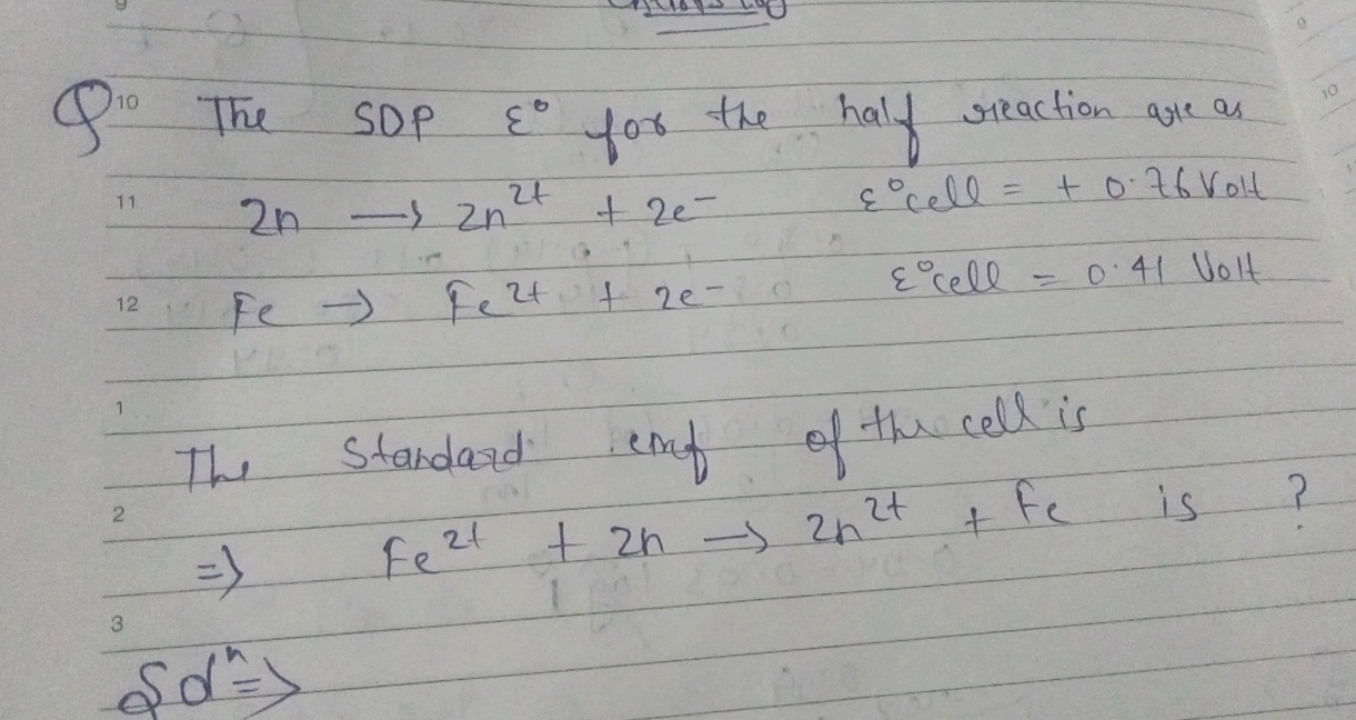 Q 10 The SOP ε° for the half reaction are as
11 Zn → Zn2+ + 2e- ε°cell = + 0.76 Volt
12 Fe → Fe2+ + 2e- ε°cell = 0.41 Volt
1
The Standard emf of the cell is
2
=> Fe2+ + Zn → Zn2+ + Fe is ?
3
Soln =>